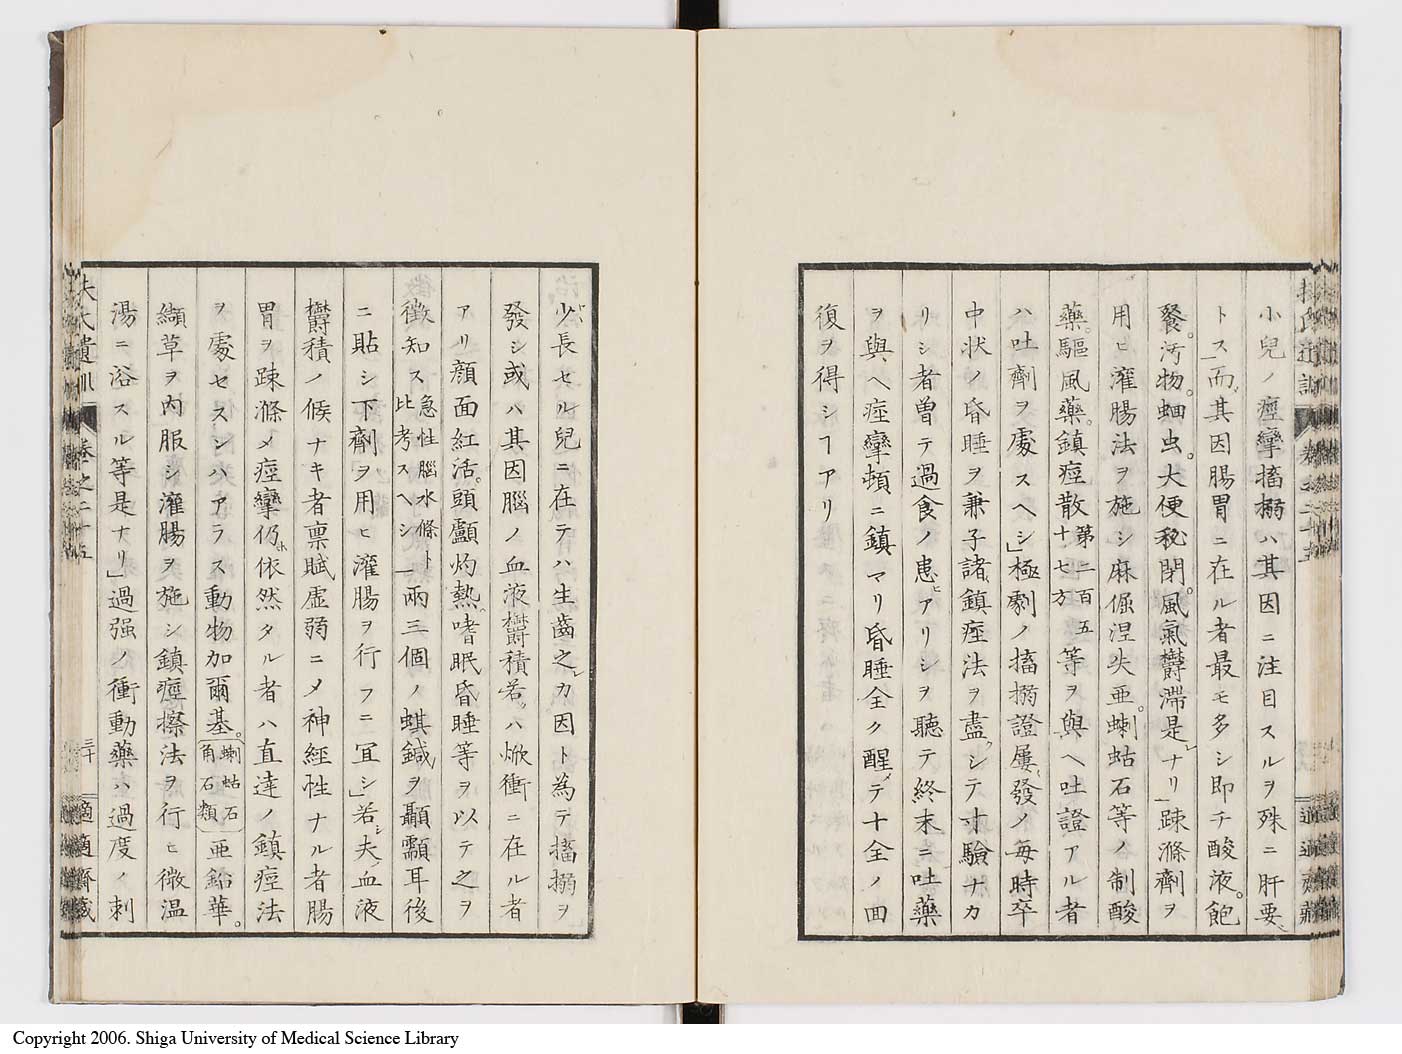 小兒ノ痙攣搐搦ハ其因ニ注目スルヲ殊ニ肝要
トス」而其因腸胃ニ在ル者最モ多シ即チ酸液。飽
餐。汚物。蛔虫。大便秘閉。風氣欝滯是ナリ」疎滌劑ヲ
用ヒ灌腸法ヲ施シ麻倔涅失亜。蝲蛄石等ノ制酸
藥。驅風藥。鎮痙散第二百五十七方等ヲ與ヘ吐證アル者
ハ吐劑ヲ處スヘシ」極劇ノ搐搦證屢發ノ毎時卒
中状ノ昏睡ヲ兼子諸鎮痙法ヲ盡シテ寸驗ナカ
リシ者曽テ過食ノ患アリシヲ聽テ終末ニ吐藥
ヲ與ヘ痙攣頓ニ鎮マリ昏睡全ク醒テ十全ノ回
復ヲ得シヿアリ
少長セル兒ニ在テハ生齒之カ因ト為テ搐搦ヲ
發シ或ハ其因腦ノ血液欝積若ハ焮衝ニ在ル者
アリ顔面紅活。頭顱灼熱。嗜眠昏睡等ヲ以テ之ヲ
徴知ス急性腦水條ト比考スヘシ」兩三個ノ蜞鍼ヲ顳顬耳後
ニ貼シ下劑ヲ用ヒ灌腸ヲ行フニ冝シ」若夫血液
欝積ノ候ナキ者禀賦虚弱ニメ神経性ナル者腸
胃ヲ疎滌メ痙攣仍依然タル者ハ直達ノ鎮痙法
ヲ處セスンハアラス動物加爾基。蝲蛄石角石類亜鉛華。
纈草ヲ内服シ灌腸ヲ施シ鎮痙擦法ヲ行ヒ微温
湯ニ浴スル等是ナリ」過强ノ衝動藥ハ過度ノ刺
扶氏遺訓 巻之二十五 三十 適適齋藏
Copyright 2006. Shiga University of Medical Science Library